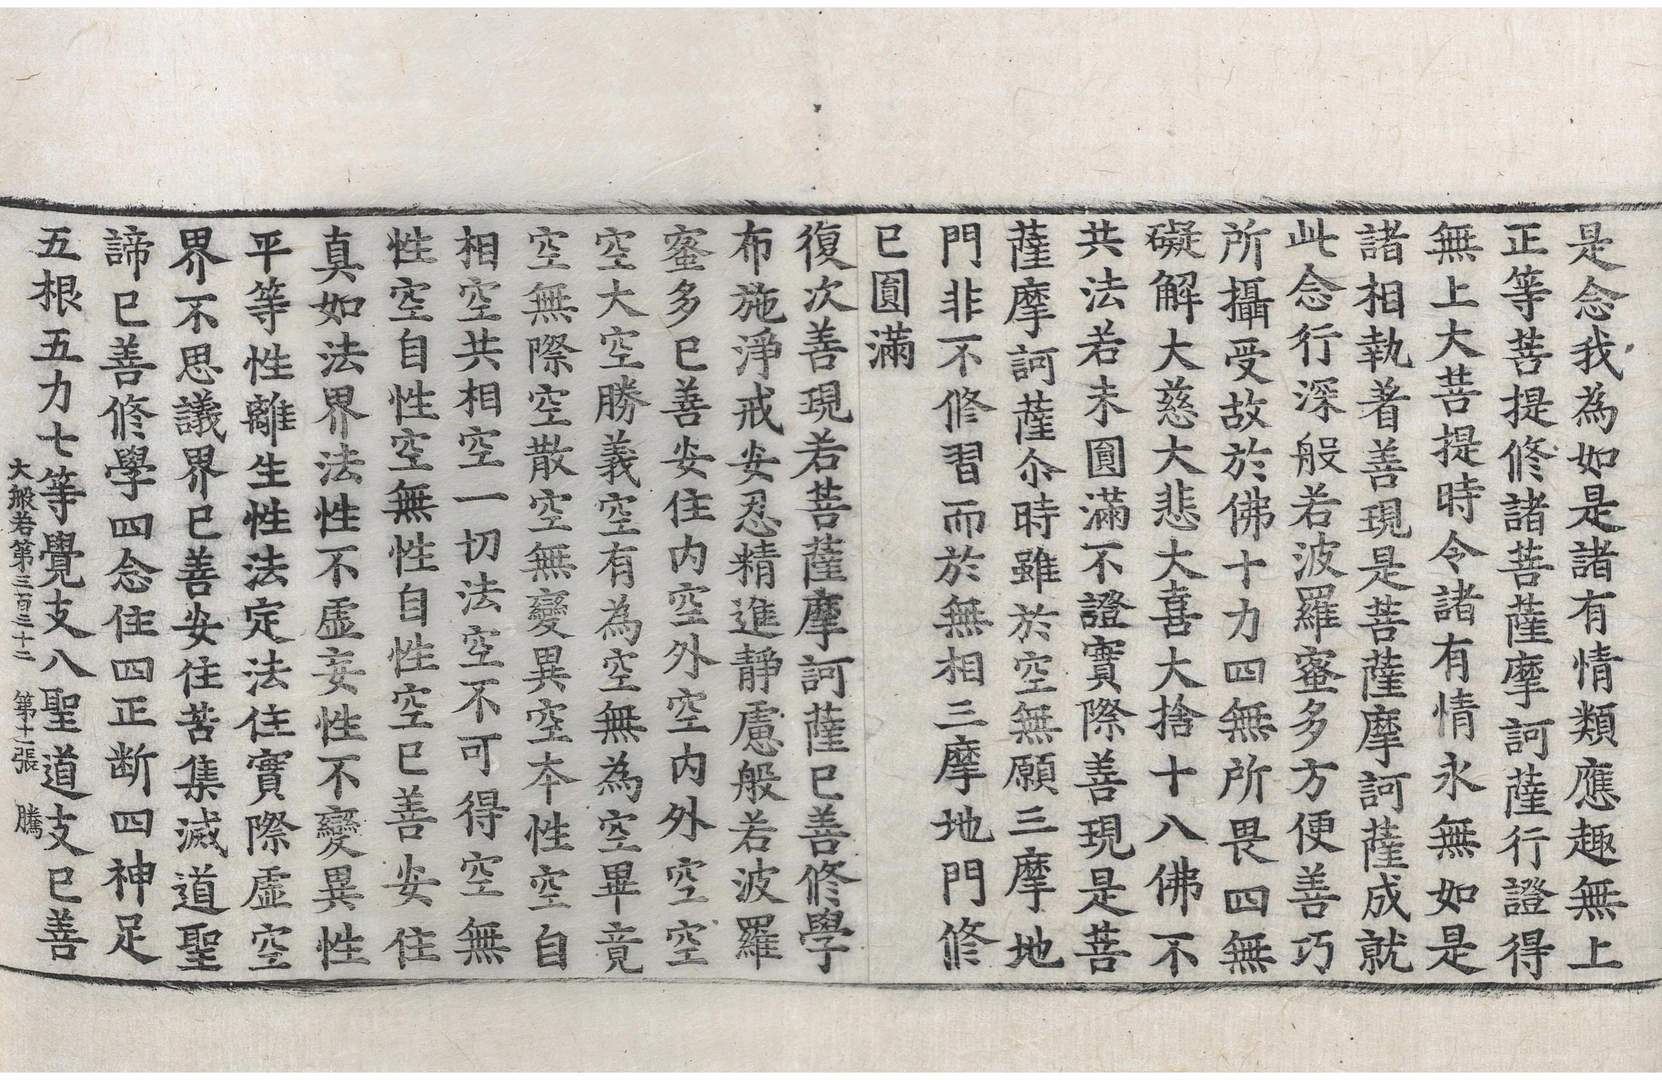 是念我為如是諸有情類應趣無上
正等菩提修諸菩薩摩訶薩行證得
無上大菩提時令諸有情永無如是
諸相執着善現是菩薩摩訶薩成就
此念行深般若波羅蜜多方便善巧
所攝受故於佛十力四無所畏四無
礙解大慈大悲大喜大捨十八佛不
共法若未圓滿不證實際善現是菩
薩摩訶薩尒時雖於空無願三摩地
門非不修習而於無相三摩地門修
已圓滿
復次善現若菩薩摩訶薩已善修學
布施淨戒安忍精進靜慮般若波羅
蜜多已善安住內空外空內外空空
空大空勝義空有為空無為空畢竟
空無際空散空無變異空本性空自
相空共相空一切法空不可得空無
性空自性空無性自性空已善安住
真如法界法性不虛妄性不變異性
平等性離生性法定法住實際虛空
界不思議界已善安住苦集滅道聖
諦已善修學四念住四正斷四神足
五根五力七等覺支八聖道支已善
大般若第三百三十二 第十一張 騰